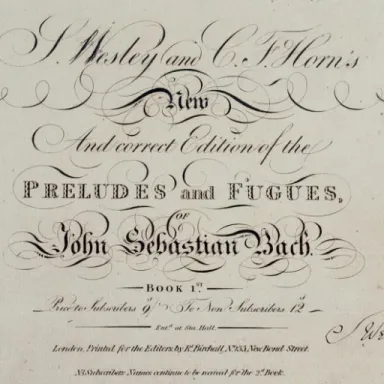 S. Wesley and C. F. Horn's
New
And correct Edition of the
PRELUDES and FUGUES,
OF
John Sebastian Bach.
BOOK 1st
Price to Subscribers 9s/ To Non Subscribers 12s
Entd. at Sta. Hall.
London, Printed for the Editors, by Rt. Birchall, No. 133, New Bond Street.
NB Subscribers Names continue to be received for the 2d. Book.